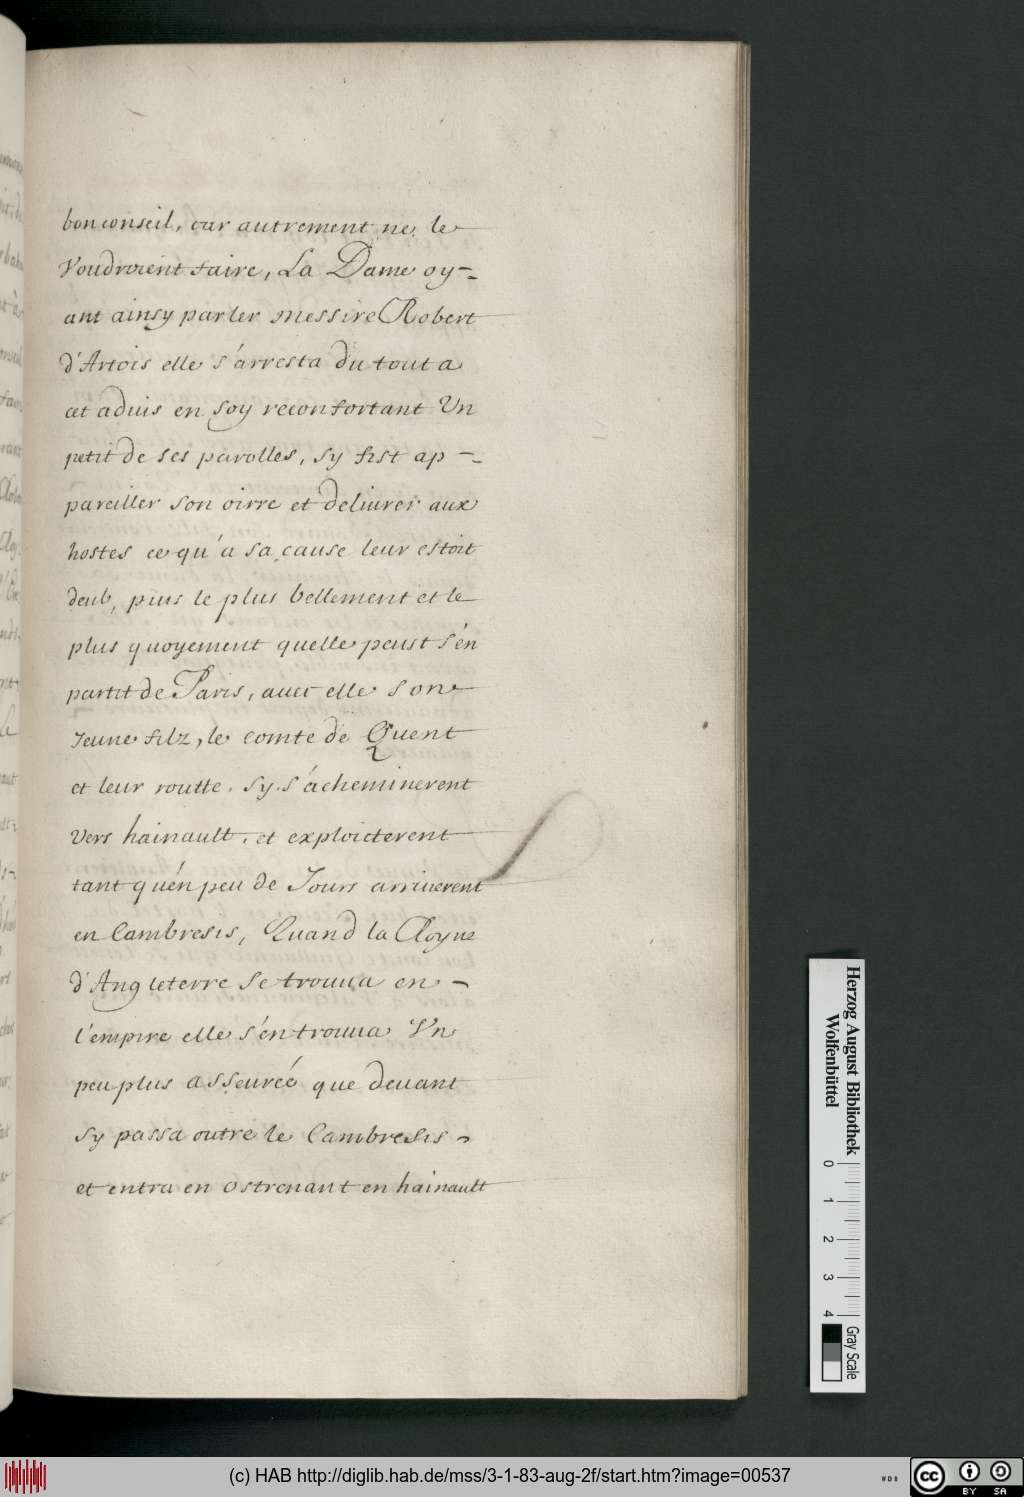 bon conseil, car autrement ne le
Voudroient faire, La Dame oy-
ant ainsy parler messire Robert
d'Artois elle s'arresta du tout a
cet aduis en soy reconfortant Un
petit de ses parolles, sy fist ap-
pareiller son oirre et deliurer aux
hostes ce qu'a sa cause leur estoit
deub, puis le plus bellement et le
plus quoyement quelle peust s'én
partit de Paris, auec elle son
Jeune filz, le comte de Quent
et leur routte. sy s'ácheminerent
vers hainault, et exploicterent
tant qu'én peu de Jours arriuerent
en Cambresis, Quand la Royne
d'Angleterre se trouua en-
l'empire elle s'én trouua Vn
peu plus asseureé que deuant
sy passa outre le Cambresis
et entra en ostrenant en hainault
Herzog August Bibliothek
Wolfenbüttel
0 1 2 3 4
Gray Scale
(c) HAB http://diglib.hab.de/mss/3-1-83-aug-2f/start.htm?image=00537
WDB
cc
BY SA